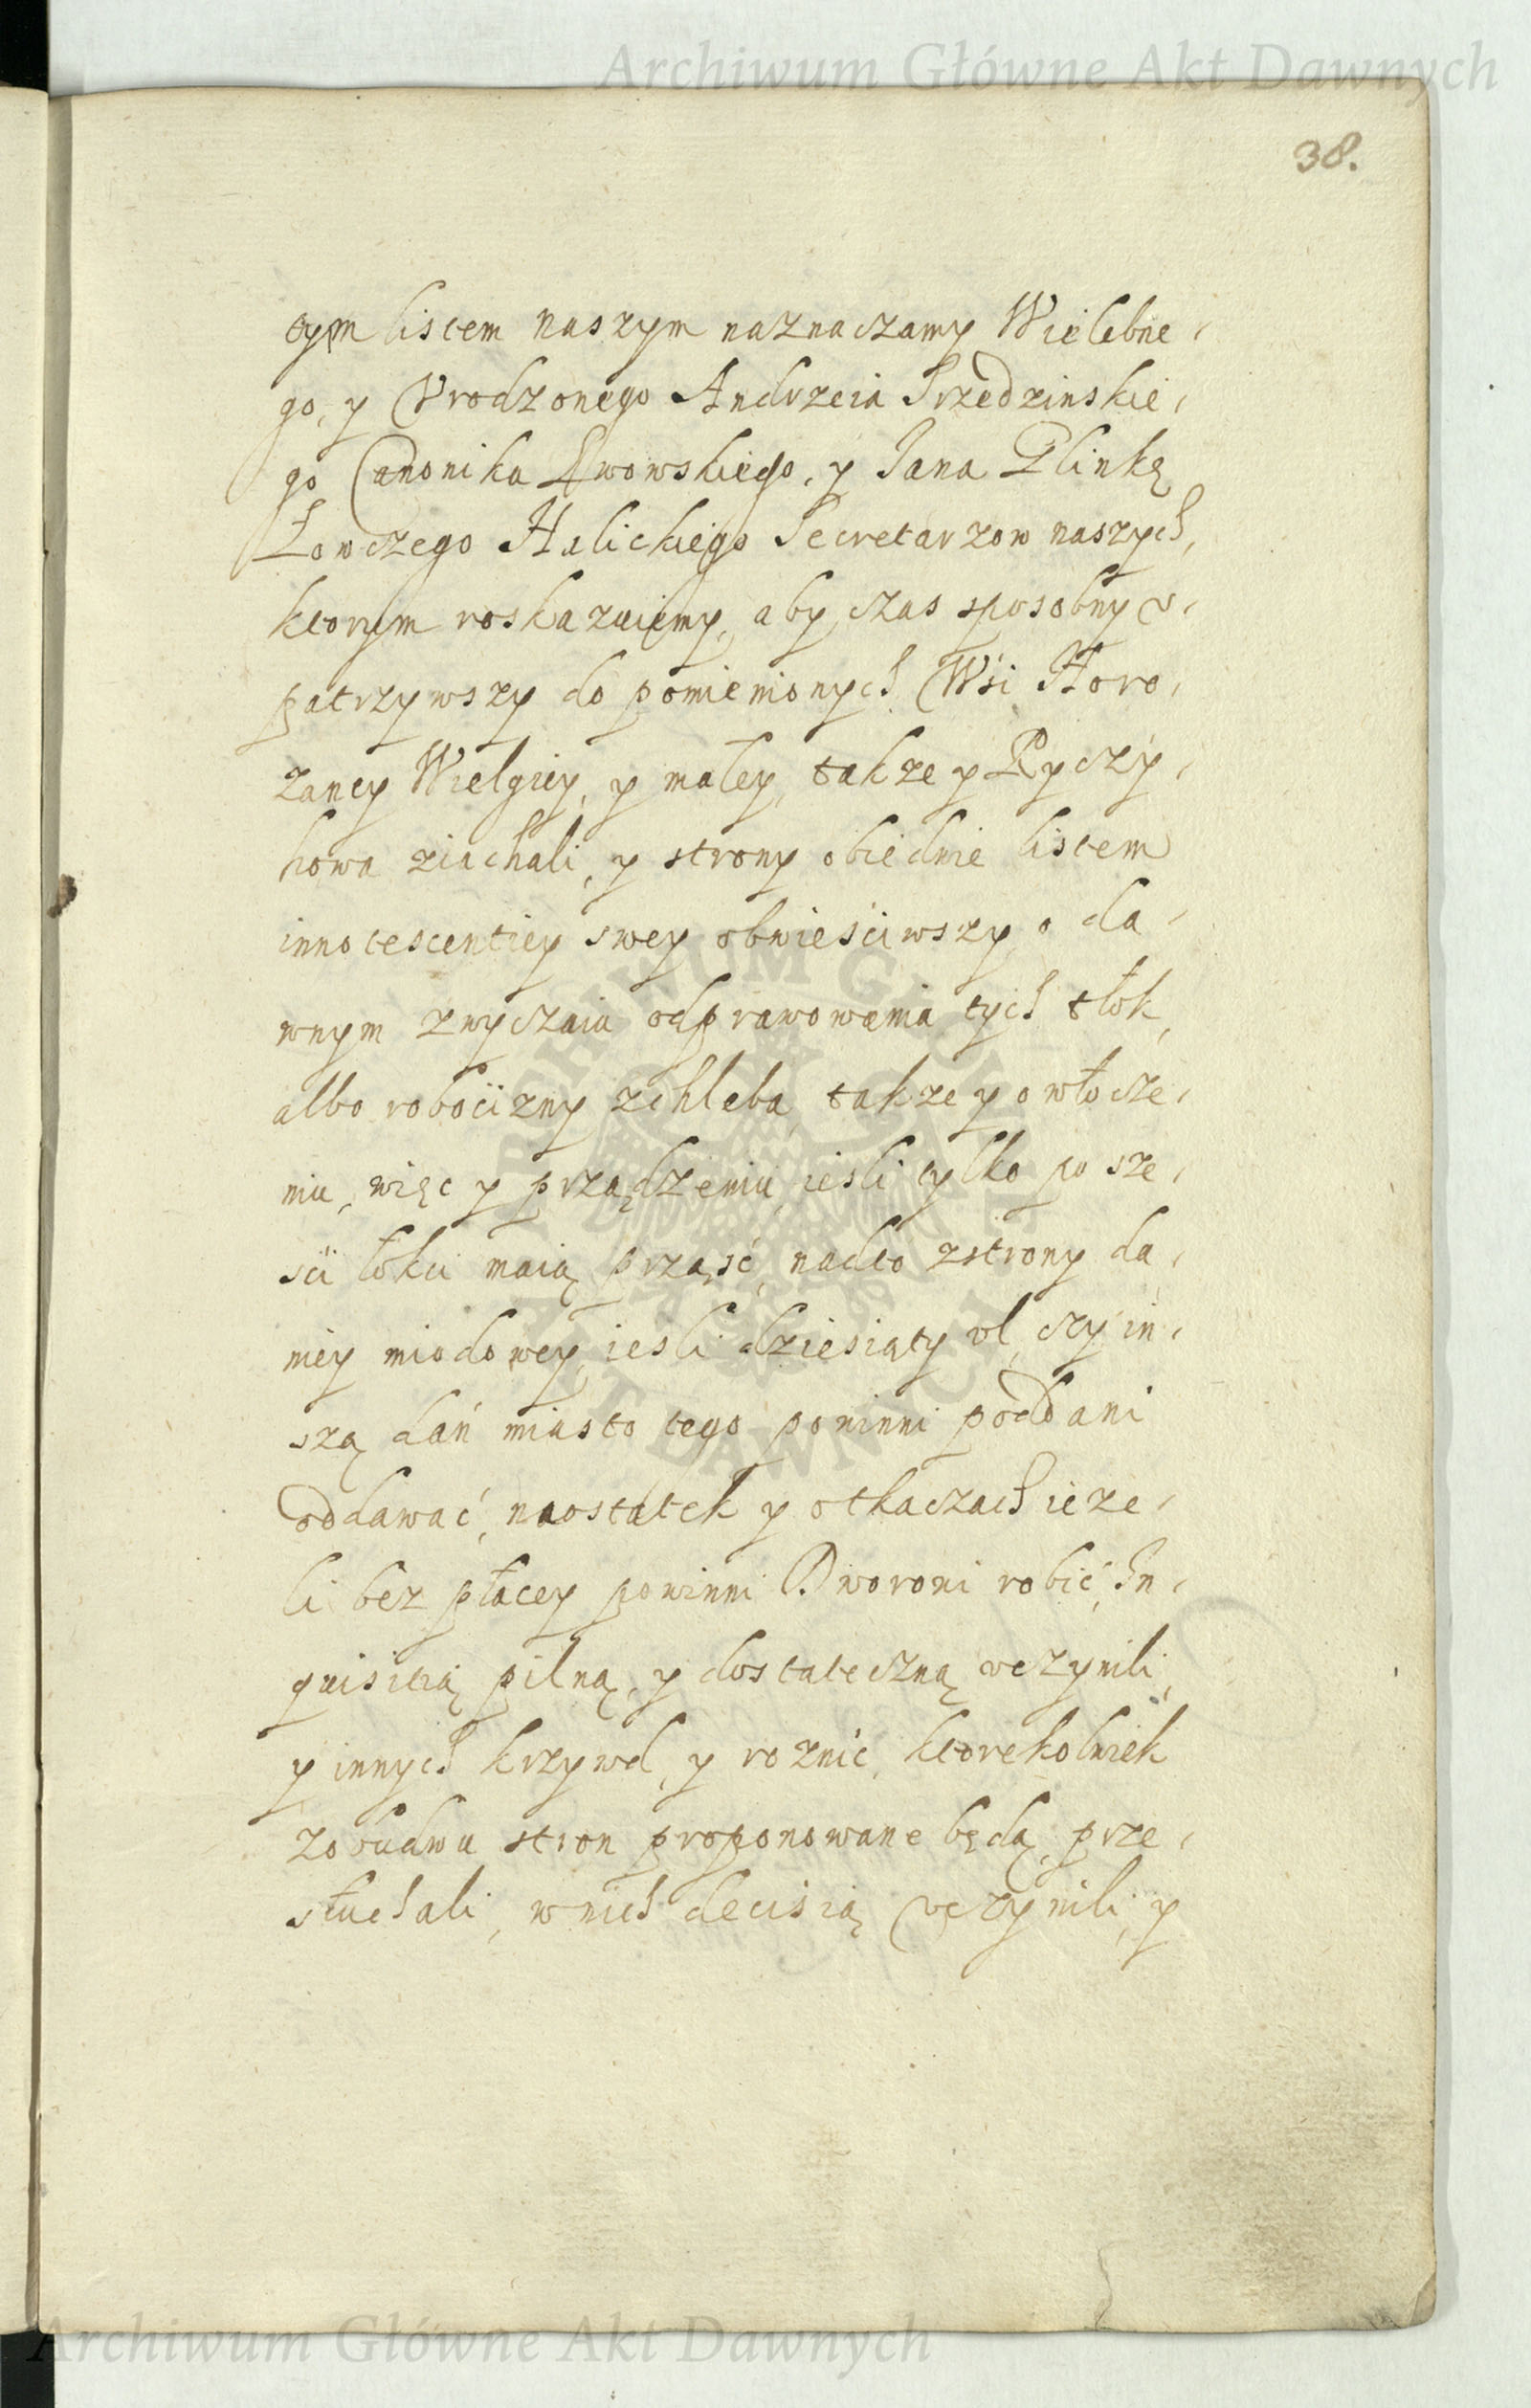 Archiwum Główne Akt Dawnych
38.
tym listem naszym naznaczamy Wielebne,
go, y Vrodzonego Andrzeia Srzedzinskie,
go Canonika Lwowskiego, y Jana Glinkę
Łowczego Halickiego Secretarzow naszych,
ktorym roskazuiemy, aby czas sposobny v,
patrzywszy do pomienionych Wśi Horo,
zaney Wielgiey, y małey, takze y Ryczy,
howa ziachali, y strony obiedwie listem
innotescentiey swey obwieściwszy, o da,
wnym zwyczaiu odprawowania tych tłok,
albo robocizny zchleba, takze y o włocze,
niu, więc y prządzeniu, iesli tylko po sze,
sci łokci maią prząść, nadto zstrony da,
niey miodowey, iesli dziesiąty vl, czy in,
szą dań miasto tego powinni poddani
oddawać, naostatek y o tkaczach ieze,
li bez płacey powinni Dworowi robić, In,
quisitią pilną, y dostateczną vczynili,
y innych krzywd, y roznic, ktorekolwiek
zobudwu stron proponowane będą, prze,
słuchali, w nich decisią vczynili, y
ARCHIWUM GŁÓWNE AKT DAWNYCH
Archiwum Główne Akt Dawnych